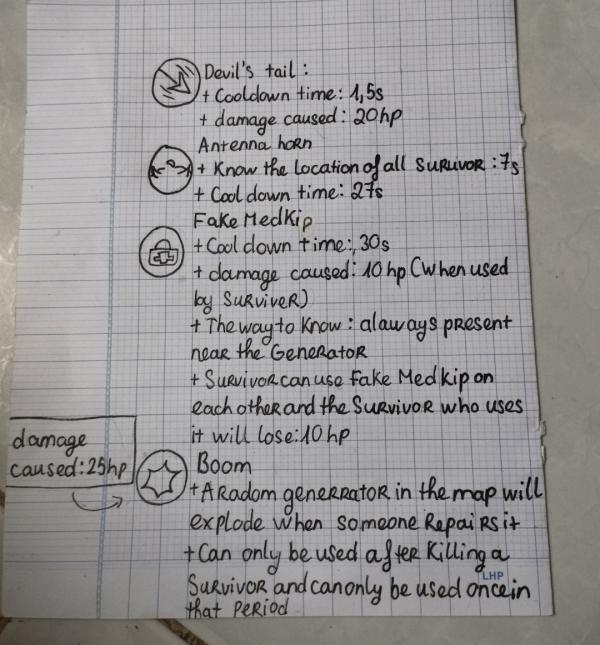 Devil's tail:
+ Cooldown time: 1,5s
+ damage caused: 20hp
Antenna horn
+ Know the location of all Survivor: 7s
+ Cool down time: 27s
Fake Medkip
+ Cool down time: 30s
+ damage caused: 10 hp (when used
by Surviver)
+ The way to know: alaways present
near the Generator
+ Survivor can use Fake Medkip on
each other and the Survivor who uses
it will lose: 10 hp
damage
caused: 25hp
Boom
+ A Radom generrator in the map will
explode when someone Repairs it
+ Can only be used after killing a
Survivor and can only be used once in
LHP
that period